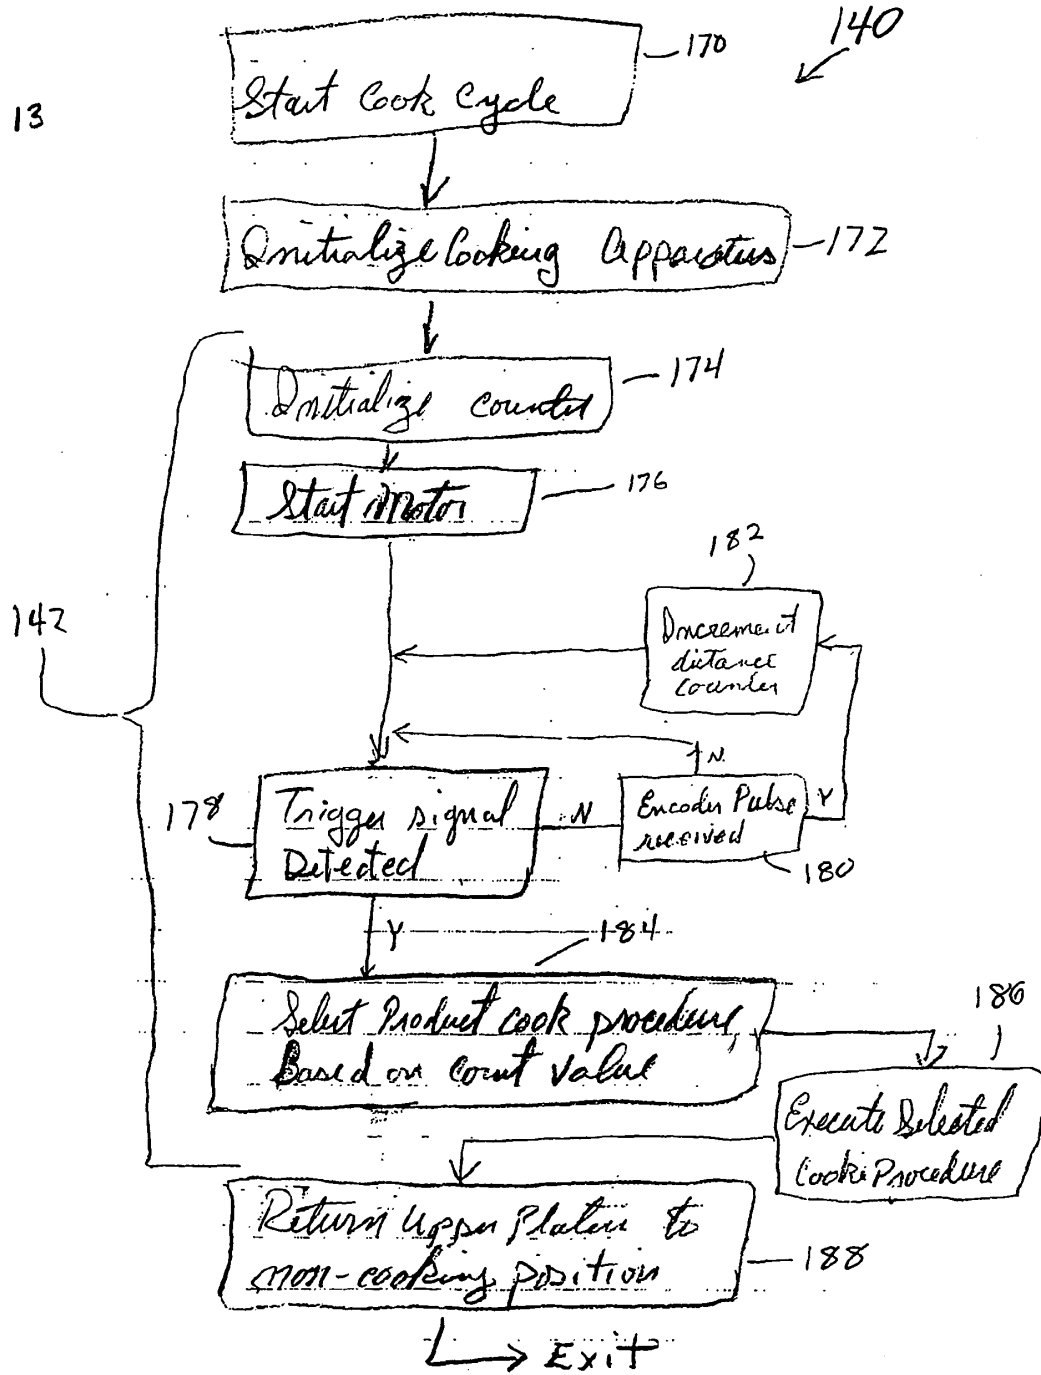 140
170
Start Cook Cycle
13
Initialize Cooking Apparatus
172
174
Initialize counter
Start Motor
176
182
Increment
distance
counter
142
N
Trigger signal
Detected
178
N
Encoder Pulse
received
Y
180
Y
184
Select Product cook procedure,
Based on count value
186
Execute Selected
Cook Procedure
Return Upper Platen to
non-cooking position
188
Exit